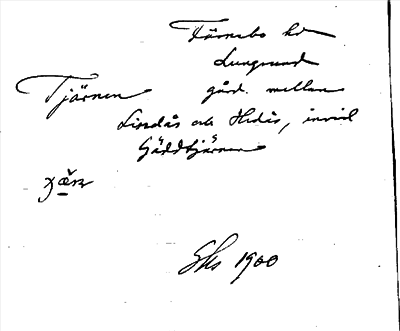 Färnebo hd
Lungsund
Tjärnen gård. mellan
Lindås och Hidås, invid
Gäddtjärnen
Eks 1900